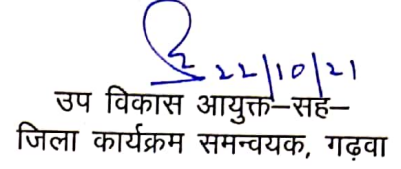 22/10/21
उप विकास आयुक्त–सह–
जिला कार्यक्रम समन्वयक, गढ़वा